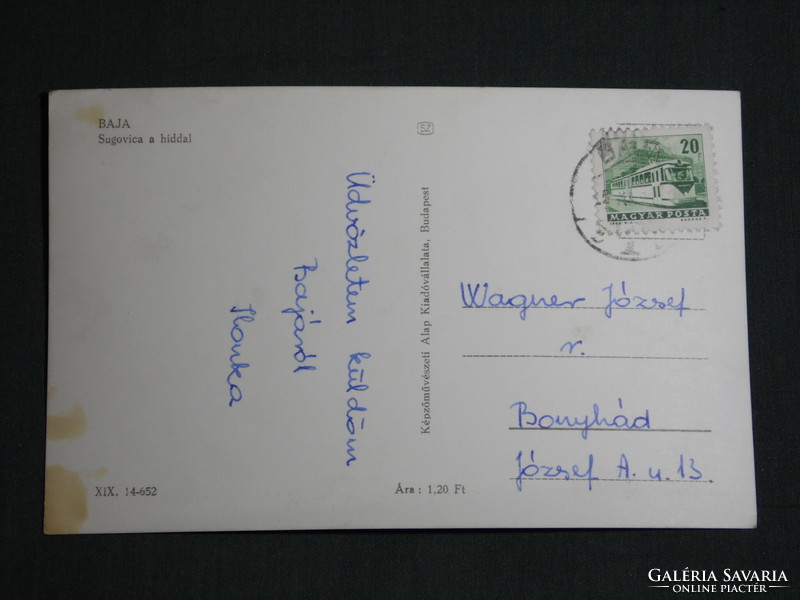 BAJA
Sugovica a híddal
Üdvözletem küldöm
Bajáról
Ilonka
Képzőművészeti Alap Kiadóvállalata, Budapest
20
MAGYAR POSTA
Wagner József
r.
Bonyhád
József A. u. 13.
XIX. 14-652
Ára : 1,20 Ft
GALÉRIA SAVARIA
ONLINE PIACTÉR